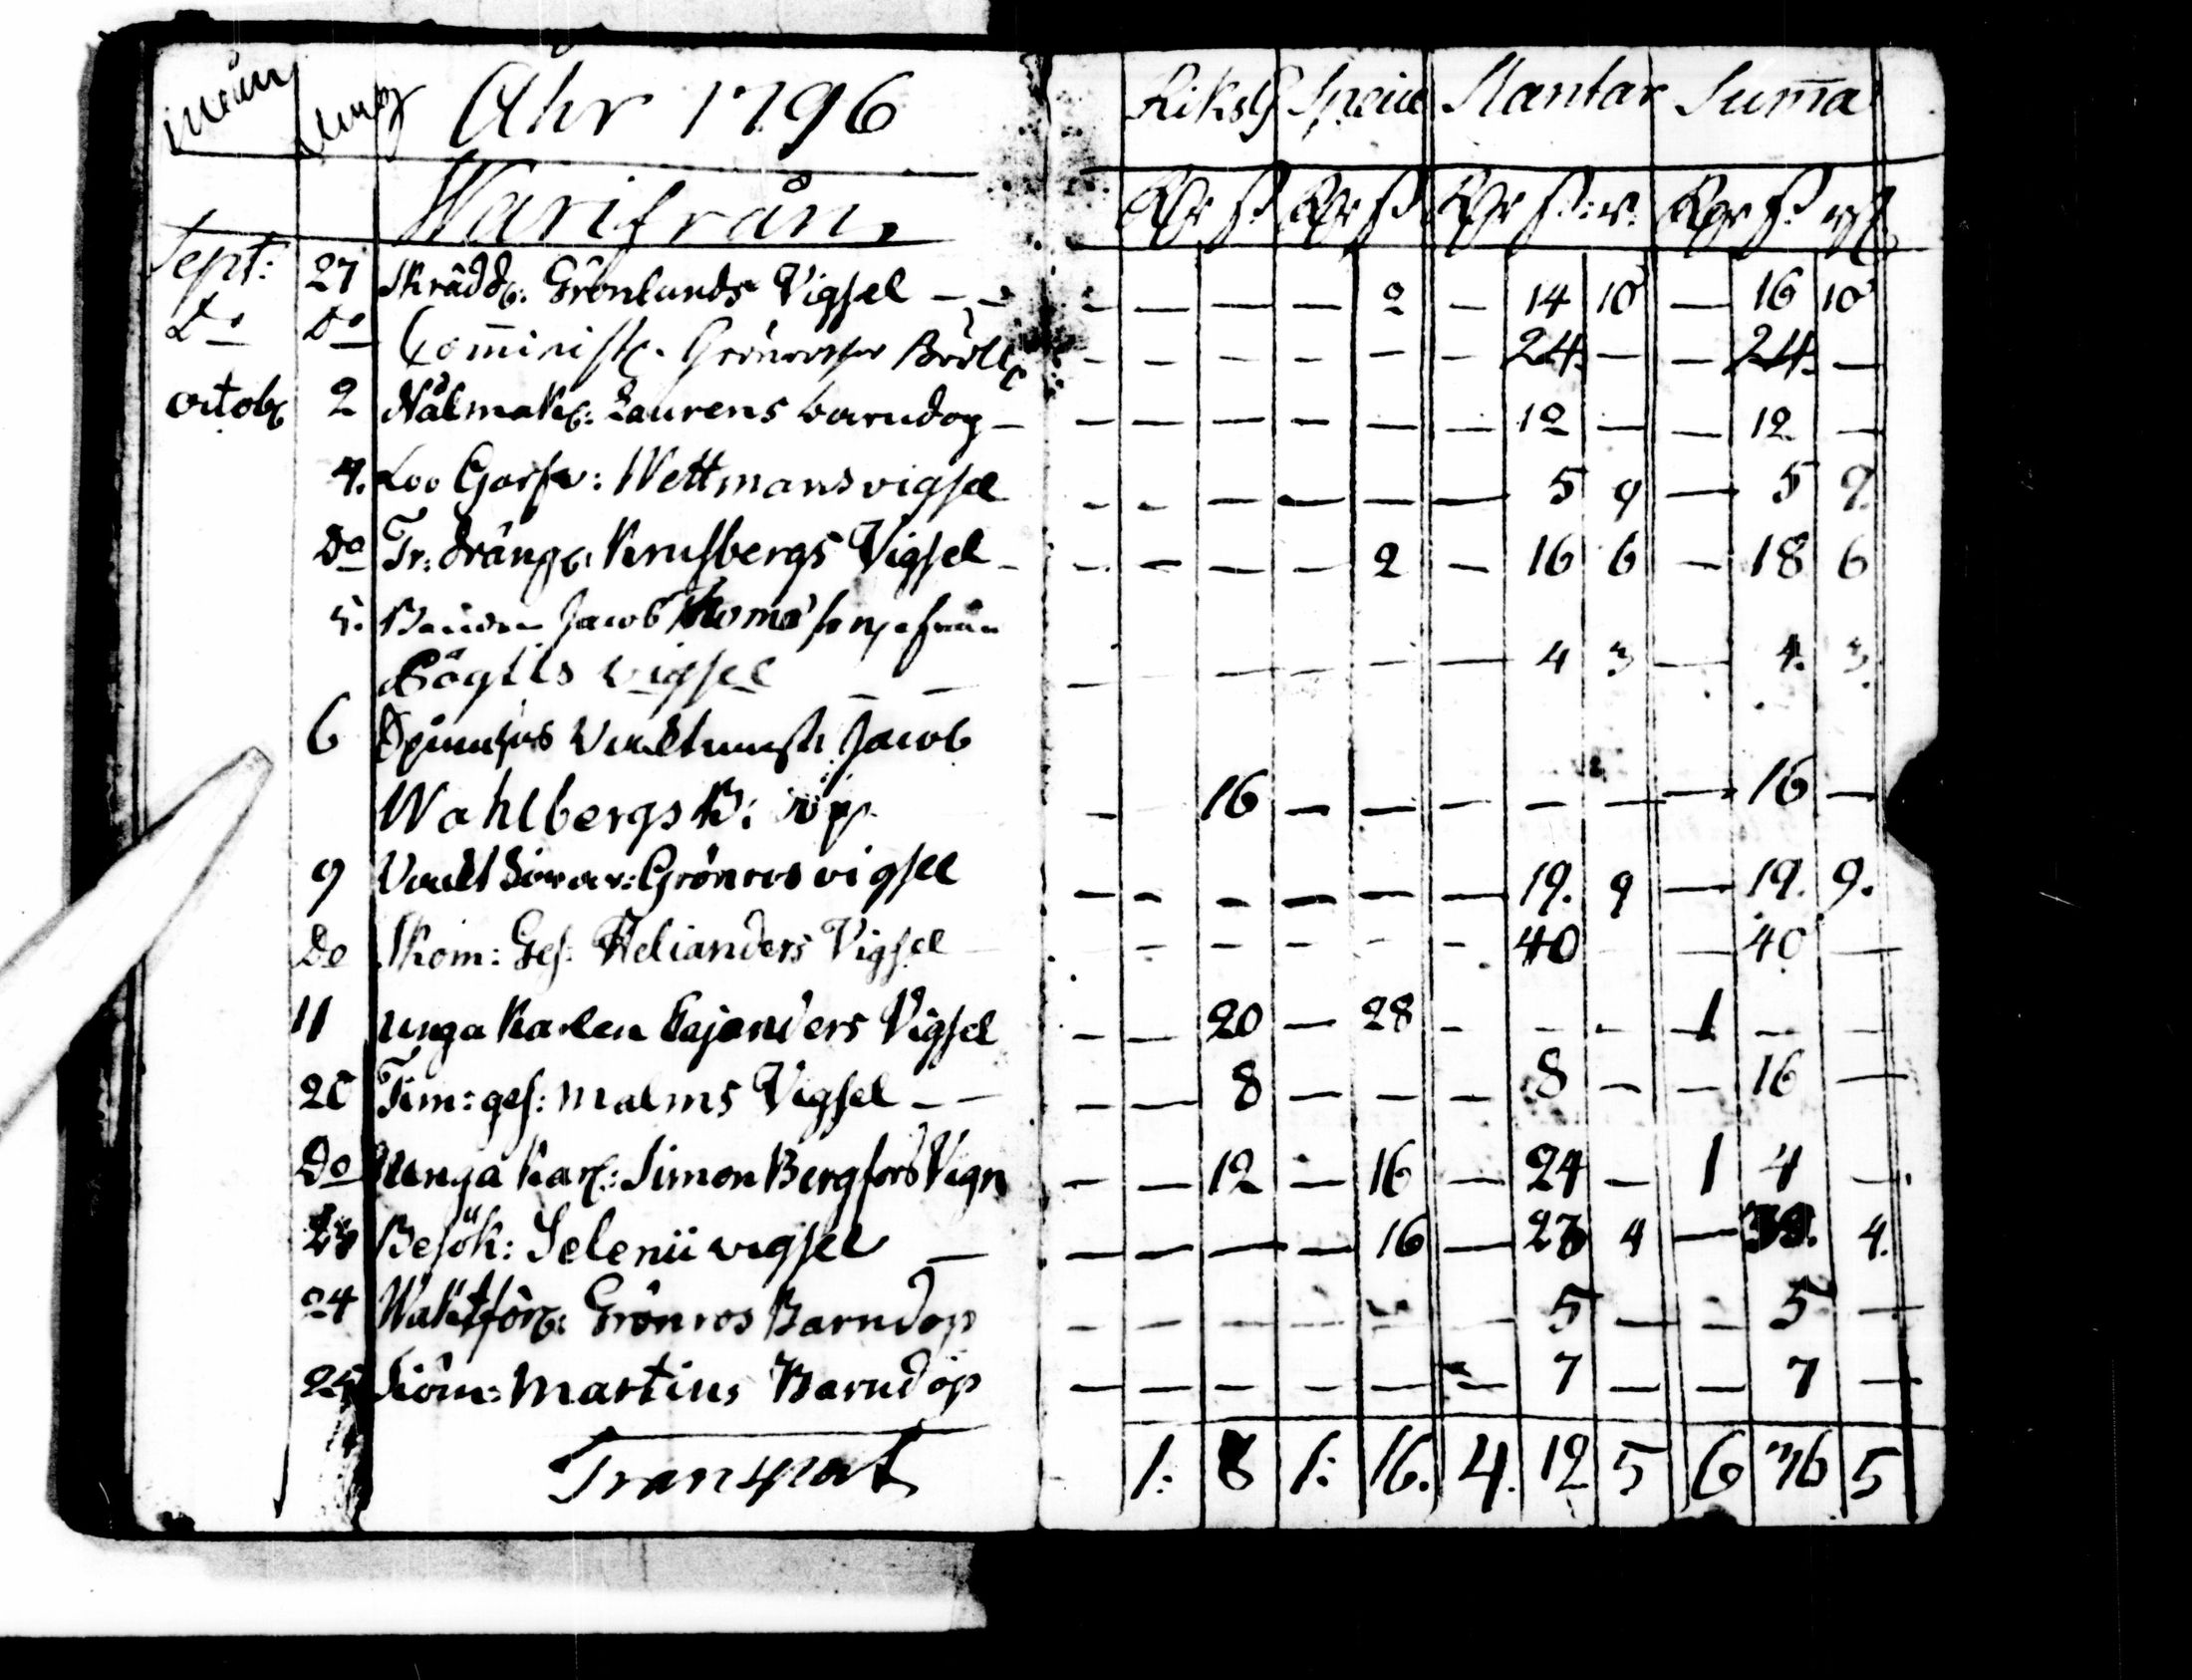 Månⱥ Dag Åhr 1796 Riksg Specie Slantar Summa
Warifrån, Rdr s. Rdr s. Rdr s. r. Rdr s. rst
Sept: 27 Skrädd: Grönlunds Vigsel — — — — — 2 — 14 10 — 16 10
Do Do Comminist. Grönroos — — — — — 24. — — 24. —
octob 2 Nålmak: Laurens barndop — — — — — — 12 — — 12 —
4. Loo Garfv: Wettmans vigsel — — — — — 5 9 — 5 9.
Do Tr: dräng: Krusbergs Vigsel — — — — — 2 — 16 6 — 18 6
5. Bonden Jacob från
vigsel — — — — — — 4 3 — 4. 3.
6 Jacob
Wahlbergs B: — 16 — — — — — — 16 —
9 Grönros vigsel — — — — — — 19. 9 — 19. 9.
Do Skom: Ges: Helianders Vigsel — — — — — — 40 — 40 —
11 unga Karlen Cajanders Vigsel — — 20 — 28 — — — 1 — —
20 Tim: ges: Malms Vigsel — — — — 8 — — — 8 — — 16 —
Do Unga Karl: Simon Bergfors Vign — — 12 — 16 — 24 — 1 4 —
23 Besök: Selenii vigsel — — — — — 16 — 23 4 — 39. 4.
24 Waktför: Grönros Barndop — — — — — — 5 — — 5 —
25 Martins Barndop — — — — — — 7 — — 7 —
Transport 1: 8 1: 16. 4. 12 5 6 36 5